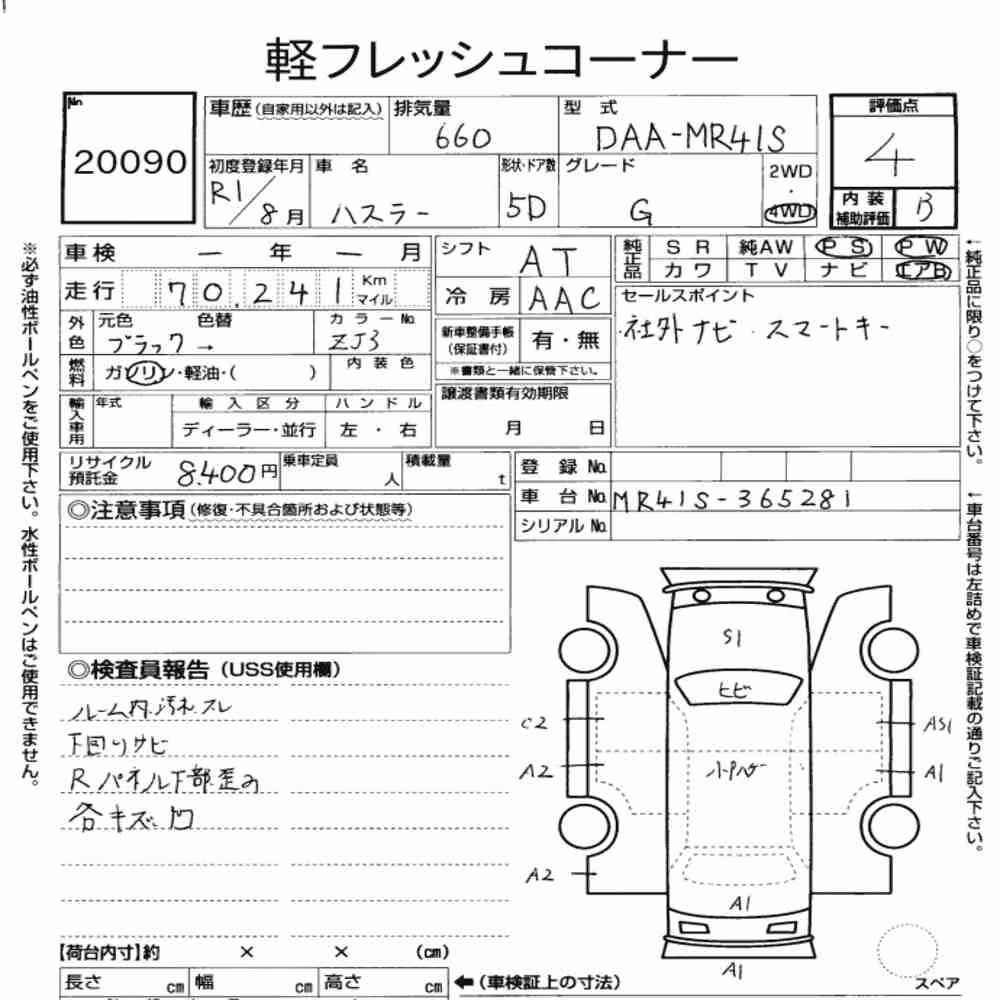 軽フレッシュコーナー
No. 20090
車歴(自家用以外は記入) 排気量 660 型式 DAA-MR41S 評価点 4
初度登録年月 R1/8月 車名 ハスラー 形状・ドア数 5D グレード G 2WD・4WD 内装補助評価 B
車検 ー年ー月 シフト AT 純正品 SR 純AW PS PW
走行 70,241 Km マイル 冷房 AAC カワ TV ナビ エアB
外色 元色 ブラック→ 色替 カラーNo. ZJ3 新車整備手帳(保証書付) 有・無 セールスポイント
社外ナビ・スマートキー
燃料 ガソリン・軽油・( ) 内装色 ※書類と一緒に保管下さい。
輸入車用 年式 輸入区分 ハンドル 譲渡書類有効期限
ディーラー・並行 左・右 月 日
リサイクル預託金 8,400円 乗車定員 人 積載量 t 登録No.
車台No. MR41S-365281
シリアルNo.
◎注意事項(修復・不具合箇所および状態等)
◎検査員報告(USS使用欄)
ルーム内汚れスレ
下回りサビ
Rパネル下部歪み
各キズ凹
S1
ヒビ
C2 AS1
A2 A1
A2
A1
A1
スペア
【荷台内寸】約 × × (cm)
長さ cm 幅 cm 高さ cm ←(車検証上の寸法)
※必ず油性ボールペンをご使用下さい。水性ボールペンはご使用できません。
←純正品に限り○をつけて下さい。
←車台番号は左詰めで車検証記載の通りご記入下さい。